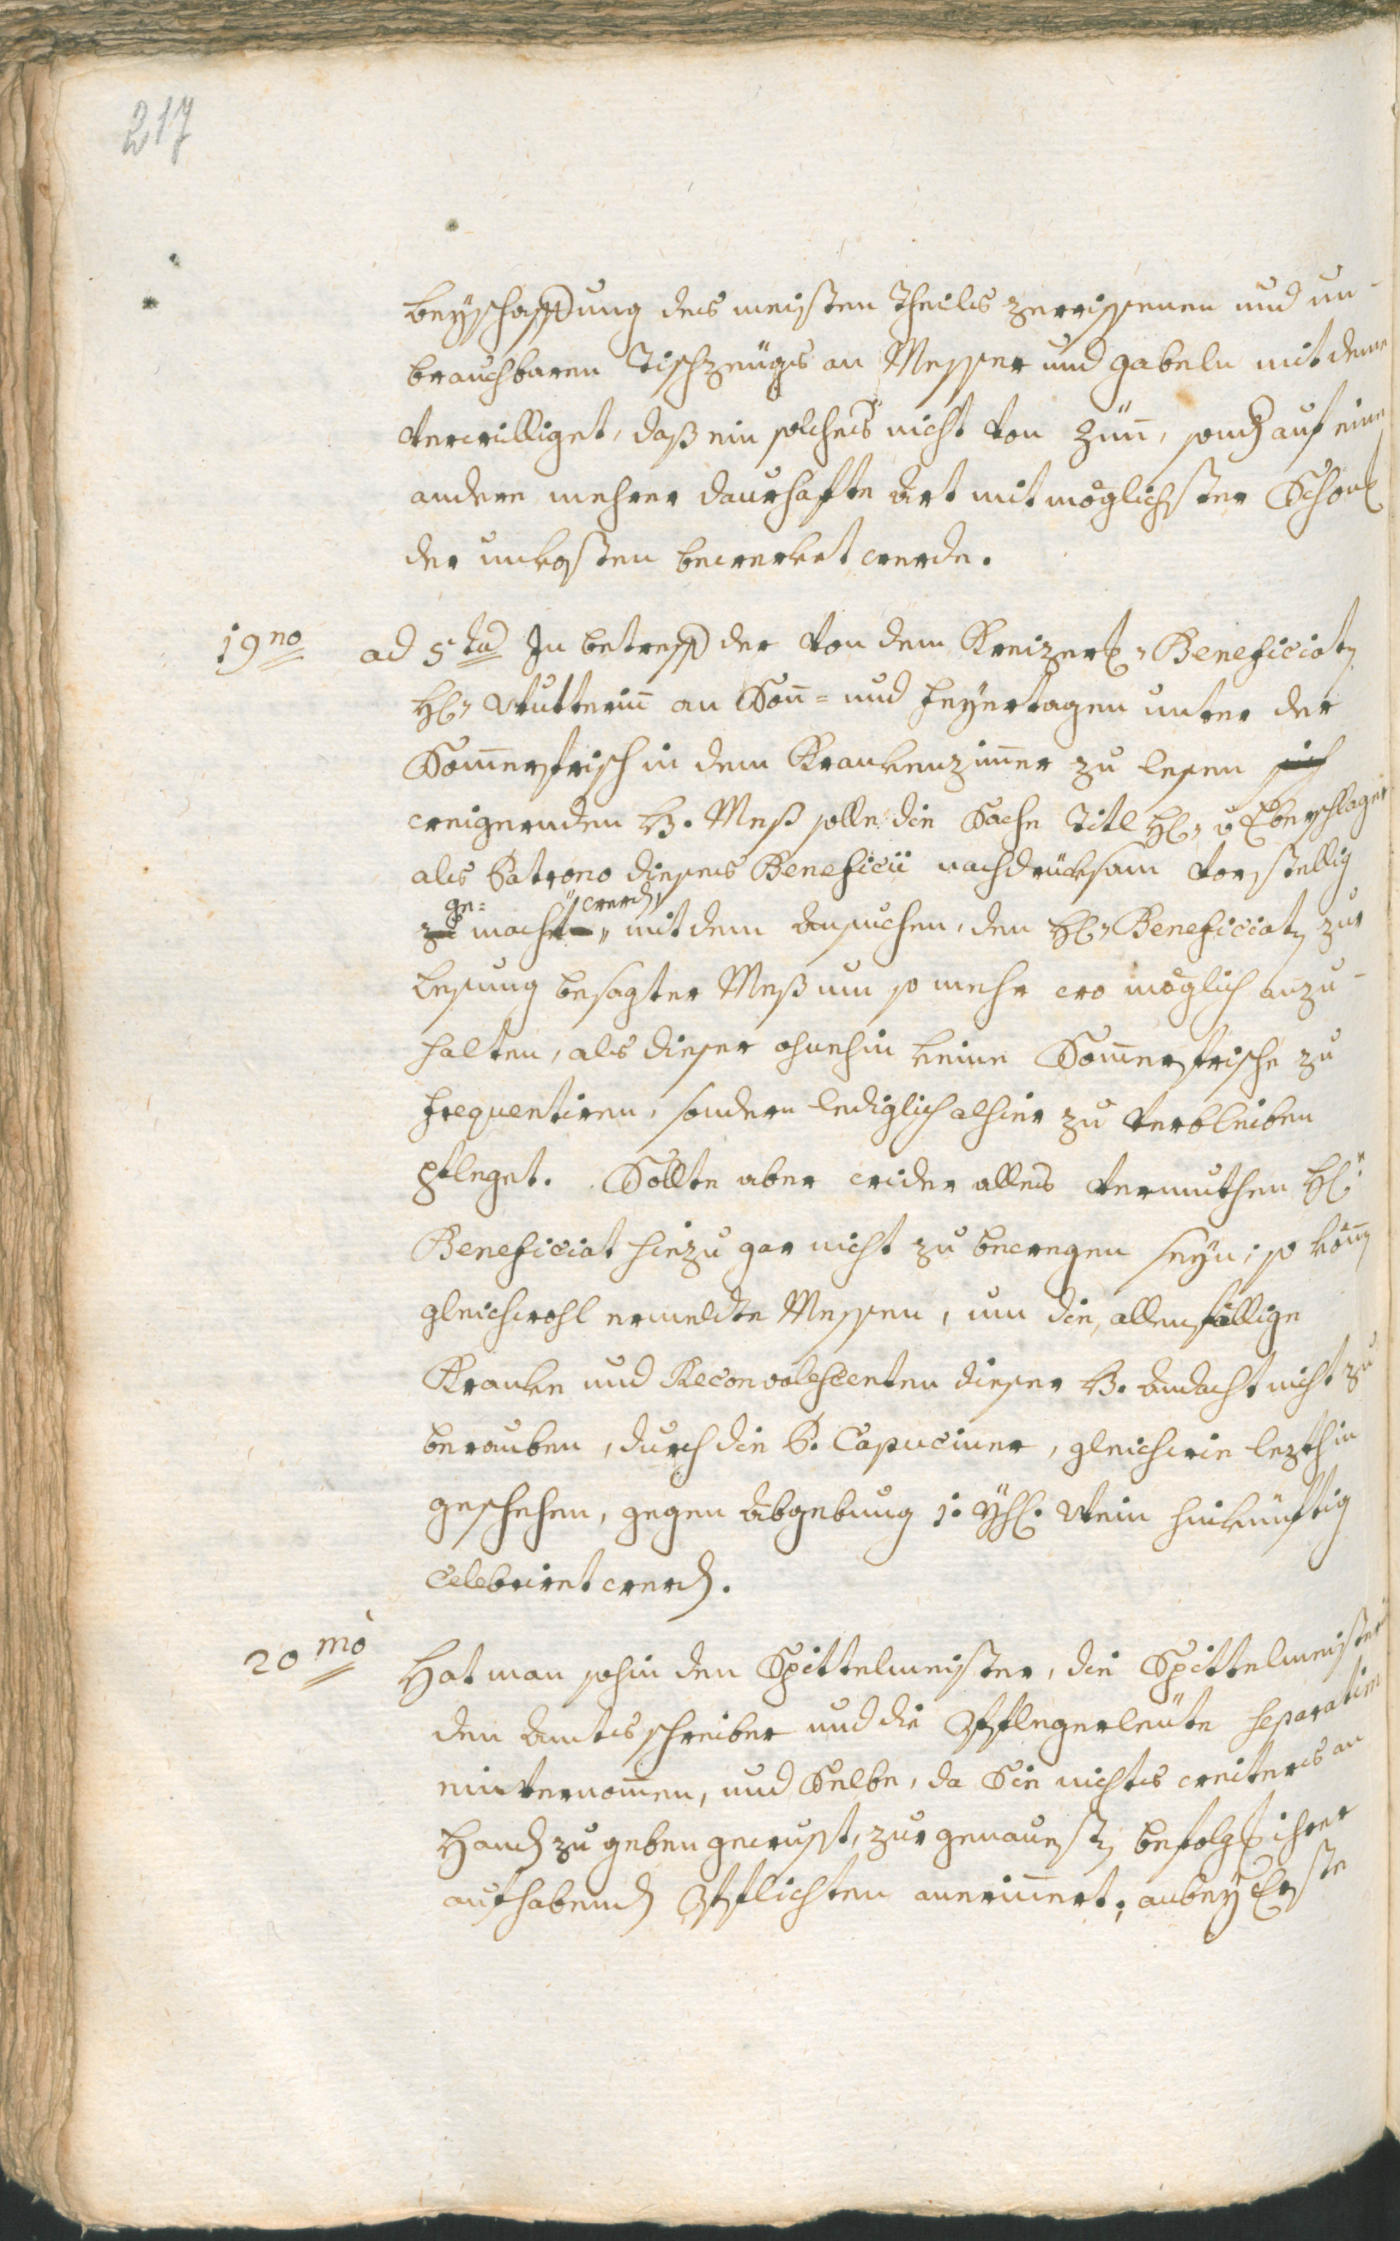 217
beyschaffung des meisten Theils zerrissenen und un-
brauchbaren Tischzeugs an Messer und gabeln mit deme
verwilliget, daß ein solches nicht von Zinn, sond. auf eine
andere mehrer daurhafte Art mit möglichster Schon[un]g
der unkosten bewerket werde.
19no ad 5tud In betreff der von dem Beneficiat.
H. an Sonn= und feyertagen unter der
Sommerfrisch in dem Krankenzimmer zu lesen sich
weigernden H. Meß solle die Sache Titl H. v Eberschlager
als Patrono dieses Beneficii nachdrüksam vorstellig
ge= werd.
zu macht, mit dem Ansuchen, den H. Beneficiat. zur
Lesung besagter Meß um so mehr wo möglich anzu-
halten, als dieser ohnehin keine Sommerfrische zu
frequentiren, sondern lediglich alhier zu verbleiben
pfleget. Sollte aber wider alles vermuthen H.
Beneficiat hiezu gar nicht zu bewegen seyn; so könn.
gleichwohl ermeldte Messen, um die allenfällige
Kranke und Reconvalescenten dieser H. Andacht nicht zu
berauben, durch die P. Capuciner, gleichwie lezthin
geschehen, gegen Abgebung 1. Yh. Wein hinkünftig
celebriert werd.
20mo Hat man sohin den Spittelmeister, die Spittelmeister
den Amtsschreiber und die Pflegerleüte separatim
einvernommen, und Selbe, da Sie nichts weiters an
Hand zu geben gewusst, zur genauest. befolg[un]g ihrer
aufhabend. Pflichten anerinnert; anbey Erste